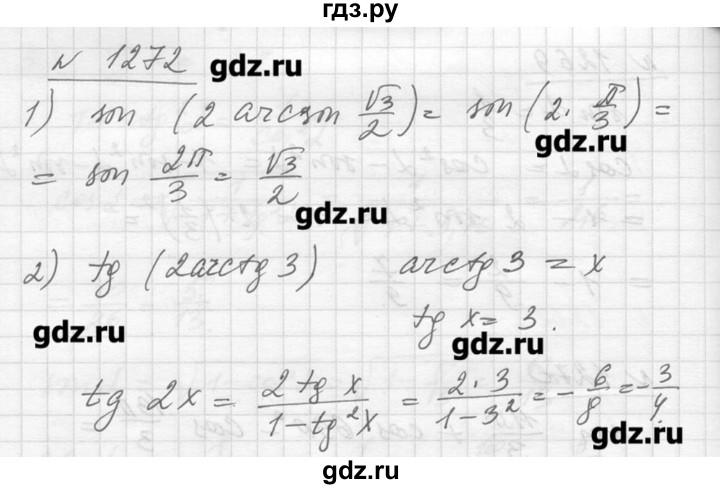 гдз.ру
№ 1272
gdz.ru
1) sin (2 arcsin √3/2) = sin (2 · π/3) =
gdz.ru
= sin 2π/3 = √3/2
gdz.ru
2) tg (2arctg 3) arctg 3 = x
gdz.ru
tg x = 3.
gdz.ru
tg 2x = 2 tg x / 1 - tg²x = 2 · 3 / 1 - 3² = - 6/8 = - 3/4
gdz.ru
gdz.ru